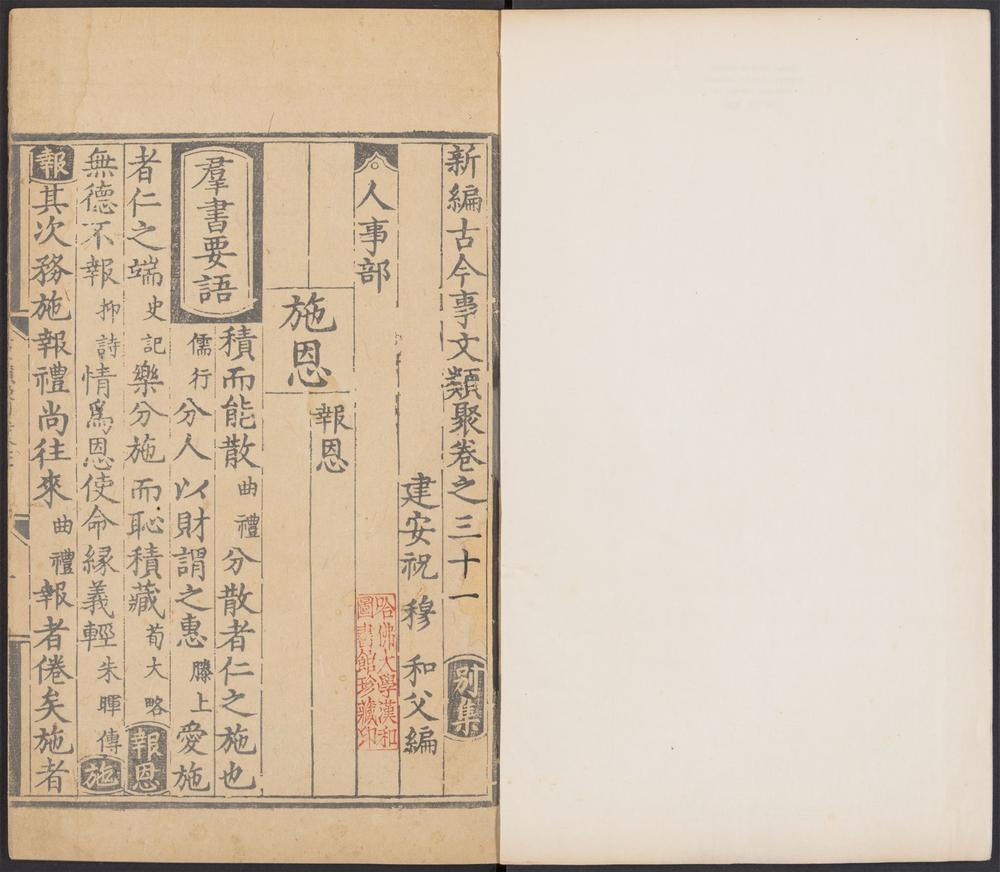 新編古今事文類聚卷之三十一 别集
建安祝 穆 和父編
哈佛大學漢和
圖書館珍藏印
人事部
報恩
施恩
羣書要語
積而能散曲禮分散者仁之施也
儒行分人以財謂之惠滕上愛施
者仁之端史記樂分施而恥積藏荀大略報恩
無德不報抑詩情爲恩使命緣義輕朱暉傳施
報其次務施報禮尚往來曲禮報者倦矣施者